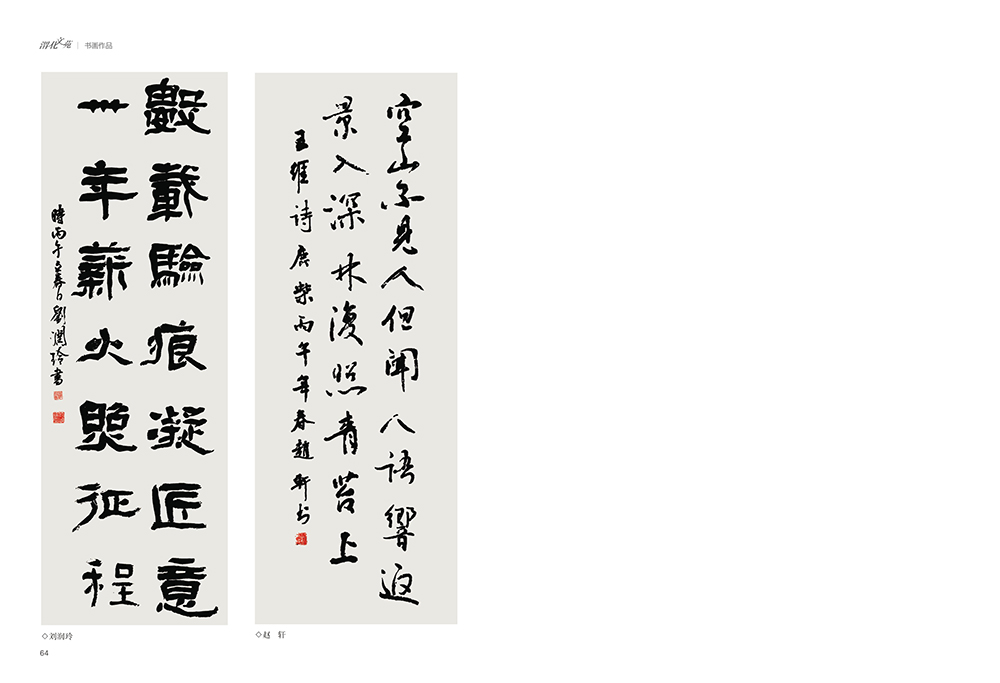 渭化文苑 | 书画作品
數載驗痕凝匠意
卅年薪火照征程
時丙午立春日劉潤玲書
空山不見人但聞人語響返
景入深林復照青苔上
王維詩鹿柴丙午年春趙軒书
◇刘润玲
◇赵 轩
64